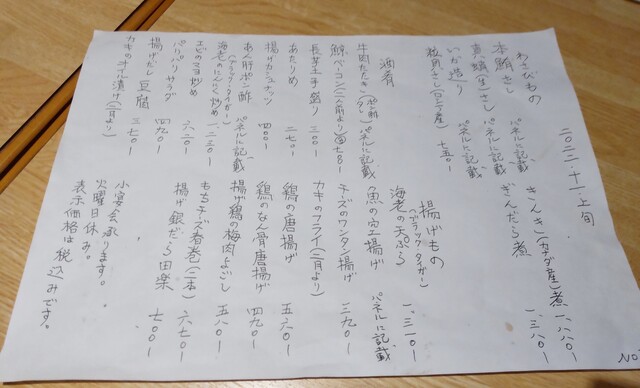 二〇二二・十一・上旬
わさびもの
本鮪さし パネルに記載
真鯛(生)さし パネルに記載
いか造り パネルに記載
牧貝さし(ロシア産) 七五〇ー
きんき(カナダ産)煮 一、八八〇ー
ぎんだら煮 一、三八〇ー
酒肴
牛肉たたき(ポン酢)(タレ) パネルに記載
鯨ベーコン(二人前より) 七八〇ー
長芋千切り 三〇〇ー
あたりめ 二七〇ー
揚げカシュナッツ 四〇〇ー
あん肝ポン酢 パネルに記載
(ブラックタイガー)
海老のにんにく炒め 一、二三〇ー
エビのマヨ炒め
パリパリサラダ 六二〇ー
揚げだし豆腐 四九〇ー
カキのオイル漬け(二月より) 三七〇ー
揚げもの
(ブラックタイガー)
海老の天ぷら 一、三一〇ー
魚の空揚げ パネルに記載
チーズのワンタン揚げ 三九〇ー
カキのフライ(二月より)
鶏の唐揚げ 五六〇ー
鶏のなん骨唐揚げ 四九〇ー
揚げ鶏の梅肉よごし 五八〇ー
もちチーズ春巻(二本) 六七〇ー
揚げ銀だら田楽 七〇〇ー
小宴会承ります。
火曜日休み。
表示価格は税込みです。